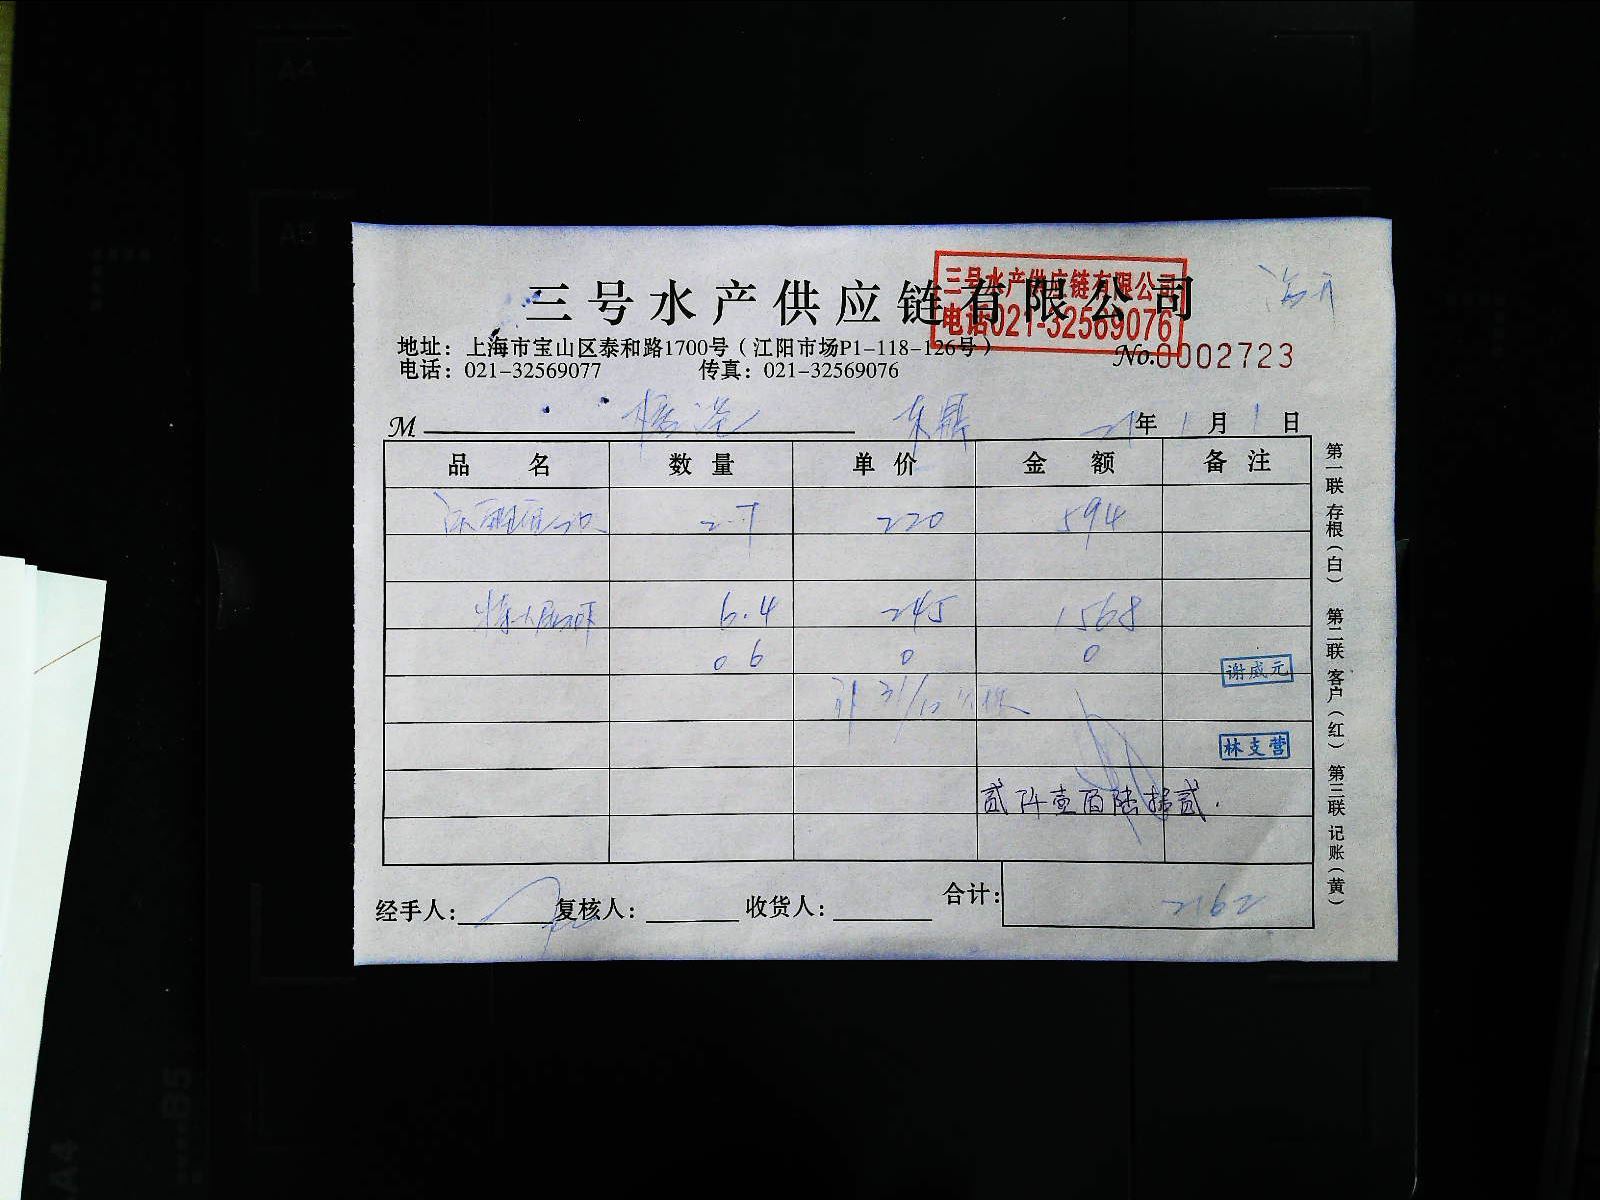 三号水产供应链有限公司
三号水产供应链有限公司
电话021-32569076
地址：上海市宝山区泰和路1700号（江阳市场P1-118-126号）
电话：021-32569077 传真：021-32569076
No.0002723
M 东鼎 21年1月1日
品名 数量 单价 金额 备注
2.7 220 594
6.4 245 1568
0 6 0 0
谢威元
31/12
林支营
贰仟壹百陆拾贰.
经手人： 复核人： 收货人： 合计： 2162
第一联 存根（白） 第二联 客户（红） 第三联 记账（黄）
A4
A5
B5
A4